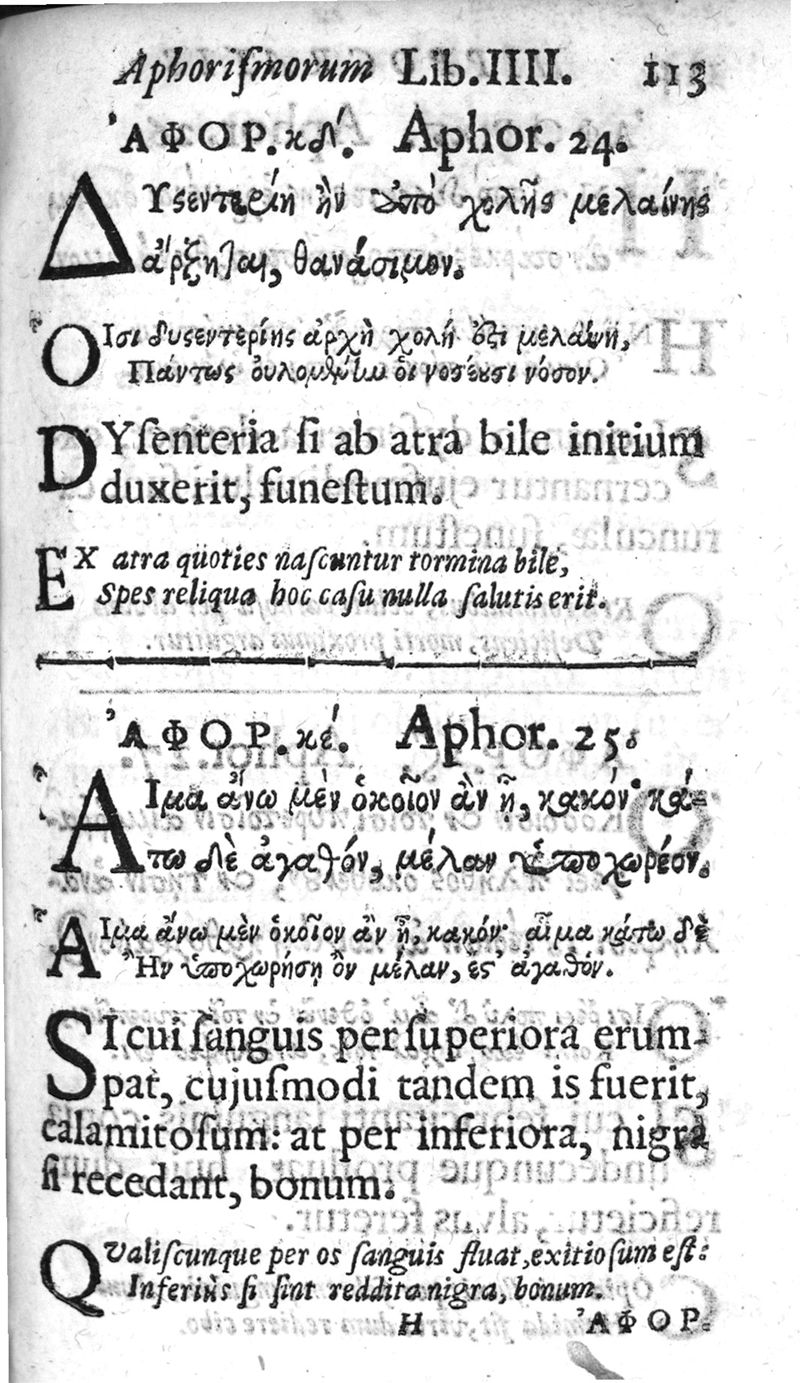 Aphoriſmorum Lib. IIII. 113
ἈΦΟΡ. κδ΄. Aphor. 24.
ΔΥσεντερίη ἢν ὑπὸ χολῆς μελαίνης
ἄρξηται, θανάσιμον.
ὉΙσι δυσεντερίης ἀρχὴ χολή ἐςι μέλαινη,
Πάντως οἱ νοσέουσι νόσον.
DYſenteria ſi ab atra bile initium
duxerit, funeſtum.
EX atra quoties naſcuntur tormina bile,
Spes reliqua hoc caſu nulla ſalutis erit.
ἈΦΟΡ. κέ. Aphor. 25.
ἉΙμα ἄνω μὲν ὁκοῖον ἂν ᾖ, κακόν· κά-
τω δὲ ἀγαθόν, μέλαν ὑποχωρέον.
ἉΙμα ἄνω μὲν ὁκοῖον ἂν ᾖ, κακόν· αἷμα κάτω δὲ
Ἢν ὑποχωρήσῃ ὂν μέλαν, ἔς' ἀγαθόν.
SI cui ſanguis per ſuperiora erum-
pat, cujuſmodi tandem is fuerit,
calamitoſum: at per inferiora, nigra
ſi recedant, bonum.
QValiſcunque per os ſanguis fluat, exitioſum eſt:
Inferiùs ſi ſint reddita nigra, bonum.
H ἈΦΟΡ.